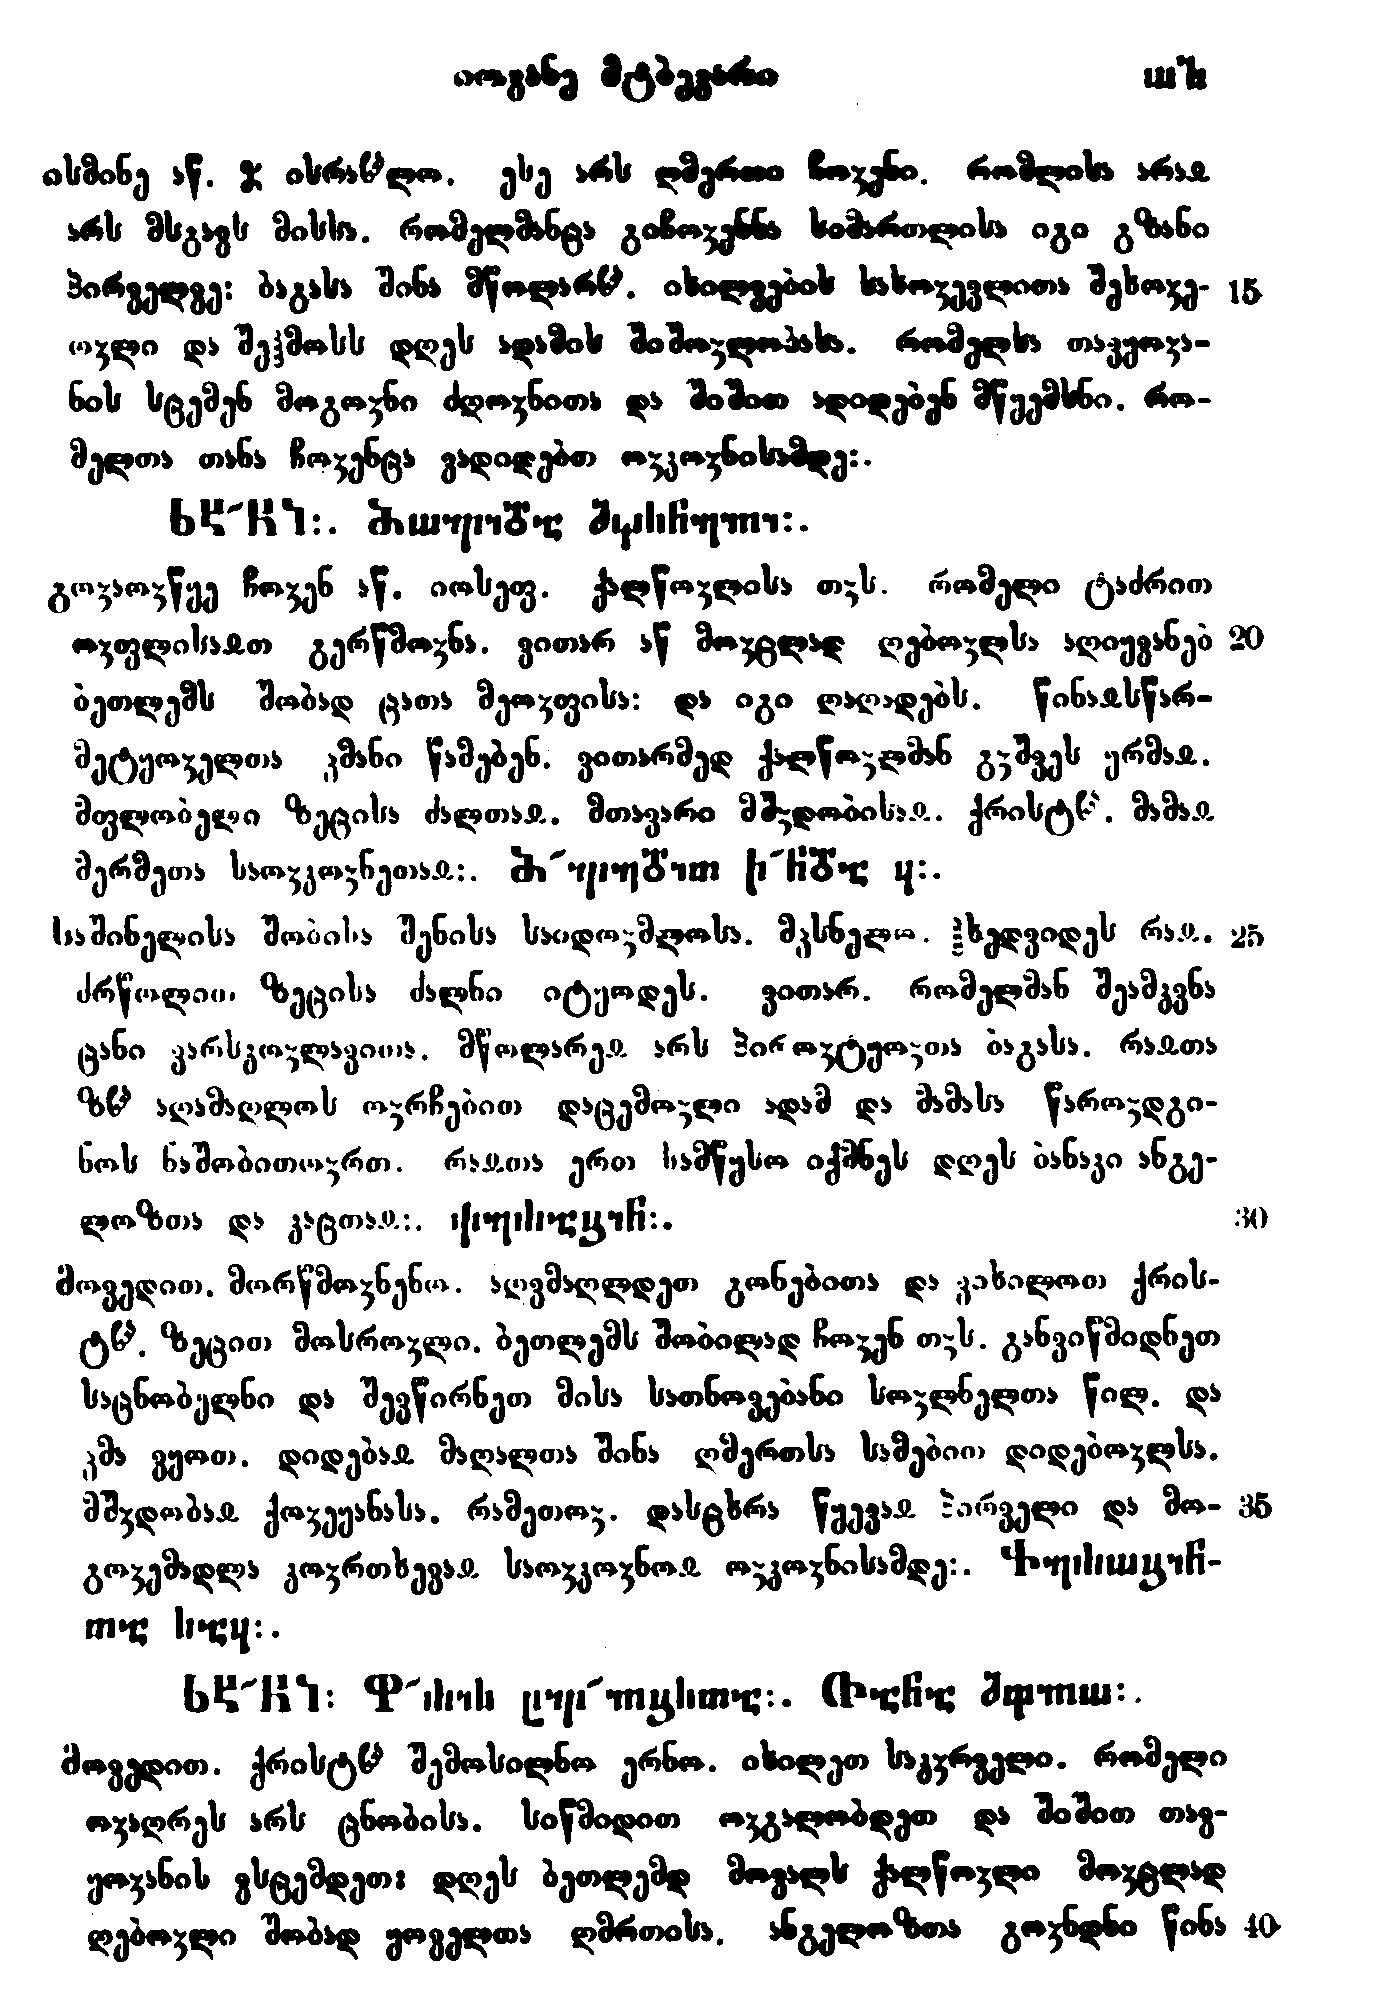 იოვანე მტბევარი
ისმინე აწ. ჵ ისრაჱლო. ესე არს ღმერთი ჩოჳენი. რომლისა არაჲ
არს მსგავს მისსა. რომელმანცა გიჩოჳენნა სიმართლისა იგი გზანი
პირველვე: ბაგასა შინა მწოლარჱ. იხილვების სახოჳევლითა შეხოჳე- 15
ოჳლი და შეჰმოსს დღეს ადამის შიშოჳლობასა. რომელსა თაჳყოჳა-
ნის სცემენ მოგოჳნი ძღოჳნითა და შიშით ადიდებენ მწყემსნი. რო-
მელთა თანა ჩოჳენცა ვადიდებთ ოჳკოჳნისამდე:.
გოჳაოჳწყე ჩოჳენ აწ. იოსეფ. ქალწოჳლისა თჳს. რომელი ტაძრით
ოჳფლისაჲთ გერწმოჳნა. ვითარ აწ მოჳცლად ღებოჳლსა აღიყვანებ 20
ბეთლემს შობად ცათა მეოჳფისა: და იგი ღაღადებს. წინაჲსწარ-
მეტყოჳელთა კმანი წამებენ. ვითარმედ ქალწოჳლმან გჳშვეს ყრმაჲ.
მფლობელი ზეცისა ძალთაჲ. მთავარი მშჳდობისაჲ. ქრისტჱ. მამაჲ
მერმეთა საოჳკოჳნეთაჲ:.
საშინელისა შობისა შენისა საიდოჳმლოსა. მჴსნელო. ჰხედვიდეს რაჲ. 25
ძრწოლით ზეცისა ძალნი იტყოდეს. ვითარ. რომელმან შეამკვნა
ცანი ვარსკოჳლავითა. მწოლარეჲ არს პიროჳტყოჳთა ბაგასა. რაჲთა
ზჱ აღამაღლოს ოჳრჩებით დაცემოჳლი ადამ და მამასა წაროჳდგი-
ნოს ნაშობითოჳრთ. რაჲთა ერთ სამწყსო იქმნეს დღეს ბანაკი ანგე-
ლოზთა და კაცთაჲ:. 30
მოვედით. მორწმოჳნენო. აღვმაღლდეთ გონებითა და ვიხილოთ ქრის-
ტჱ. ზეცით მოსროჳლი. ბეთლემს შობილად ჩოჳენ თჳს. განვიწმიდნეთ
საცნობელნი და შევწირნეთ მისა სათნოვებანი სოჳლნელთა წილ. და
კმა ვყოთ. დიდებაჲ მაღალთა შინა ღმერთსა სამებით დიდებოჳლსა.
მშჳდობაჲ ქოჳეყანასა. რამეთოჳ. დასცხრა წყევაჲ პირველი და მო- 35
გოჳემადლა კოჳრთხევაჲ საოჳკოჳნოჲ ოჳკოჳნისამდე:.
მოვედით. ქრისტჱ შემოსილნო ერნო. იხილეთ საკჳრველი. რომელი
ოჳაღრეს არს ცნობისა. სიწმიდით ოჳგალობდეთ და შიშით თავ-
ყოჳანის ვსცემდეთ: დღეს ბეთლემდ მოვალს ქალწოჳლი მოჳცლად
ღებოჳლი შობად ყოველთა ღმრთისა. ანგელოზთა გოჳნდნი წინა 40